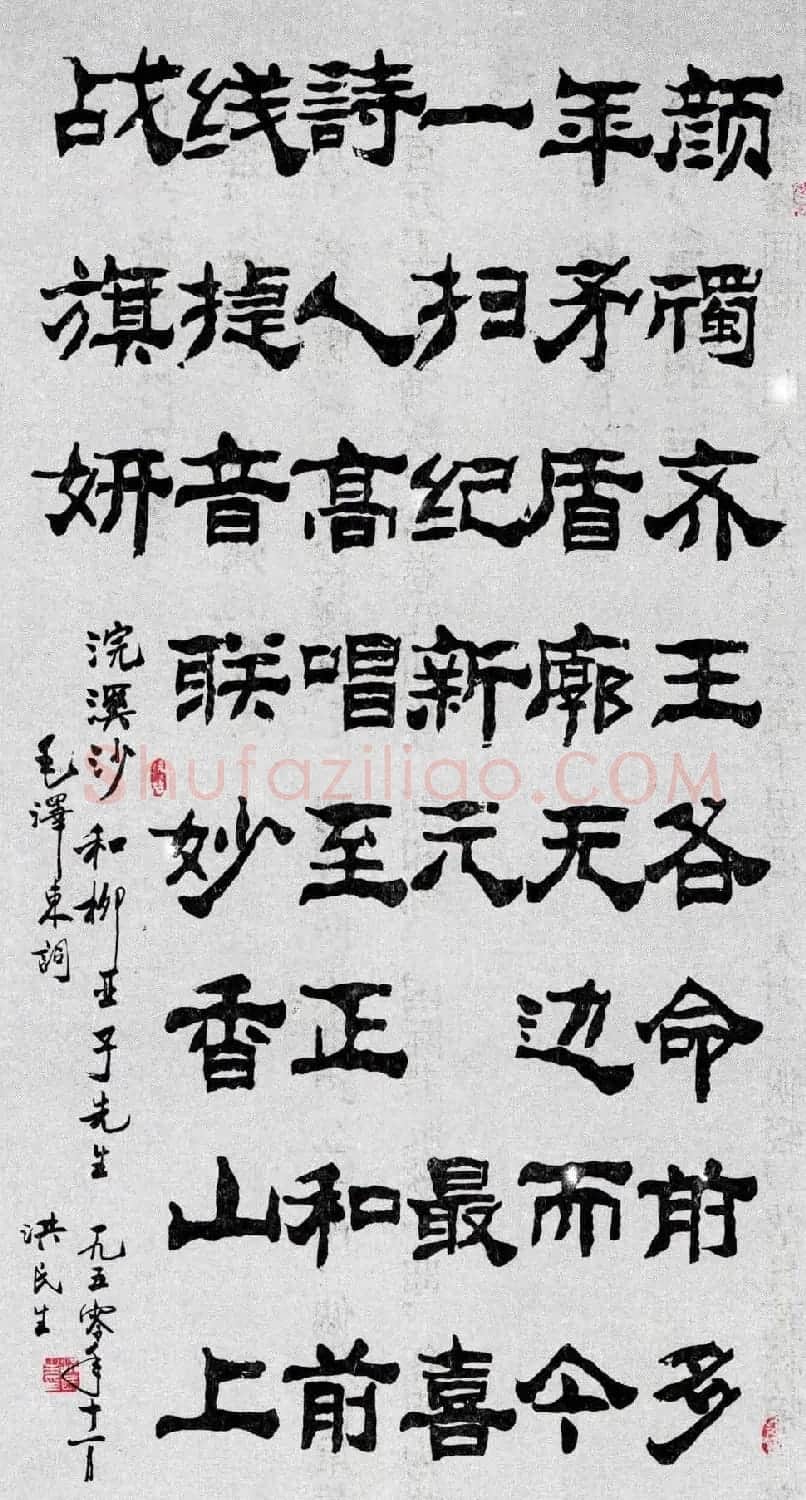 颜斶齐王各命前多
年矛盾廓无边而今
一扫纪新元最喜
詩人高唱至正和前
线捷音联妙香山上
战旗妍
浣溪沙和柳亚子先生 一九五零年十一月
毛澤東詞 洪民生
Shufaziliao.COM